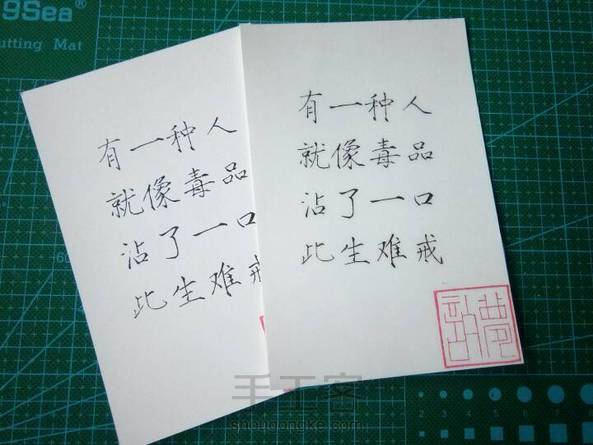 9Sea®
utting Mat
有一种人
就像毒品
沾了一口
此生难戒
有一种人
就像毒品
沾了一口
此生难戒
手工客
shougongke.com